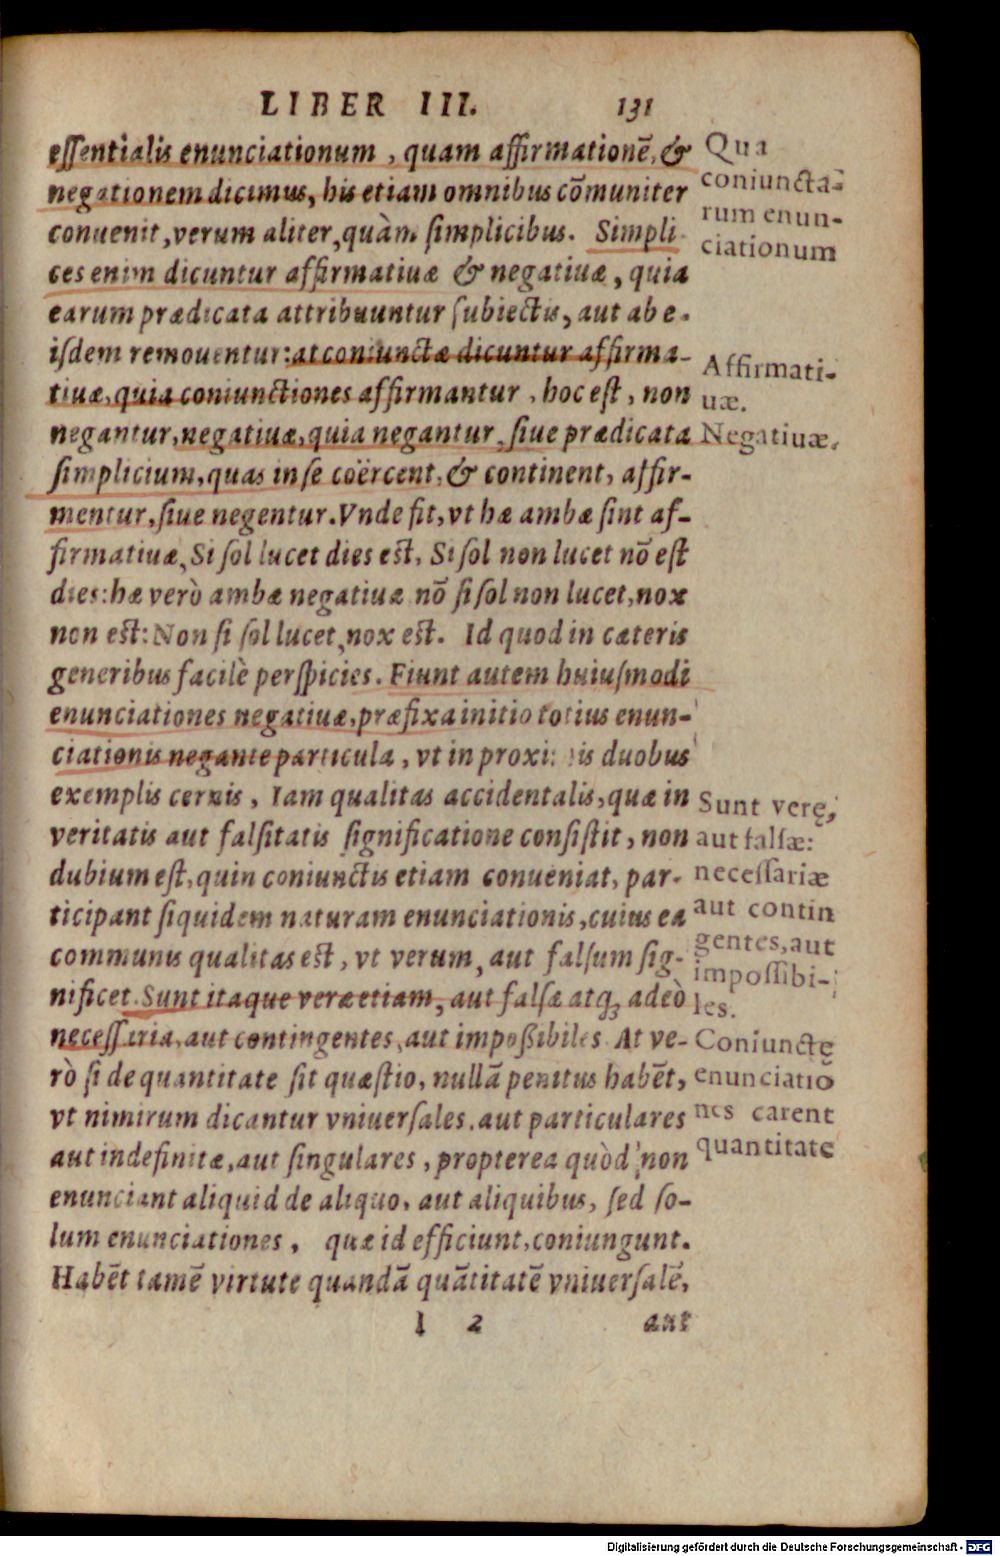 LIBER III. 131
essentialis enunciationum, quam affirmationē, &
negationem dicimus, his etiam omnibus cōmuniter
conuenit, verum aliter, quàm simplicibus. Simpli
ces enim dicuntur affirmatiuæ & negatiuæ, quia
earum prædicata attribuuntur subiectis, aut ab e-
isdem remouentur: at coniunctæ dicuntur affirma-
tiuæ, quia coniunctiones affirmantur, hoc est, non
negantur, negatiuæ, quia negantur, siue prædicata
simplicium, quas in se coërcent, & continent, affir-
mentur, siue negentur. Vnde fit, vt hæ ambæ sint af-
firmatiuæ, Si sol lucet dies est, Si sol non lucet nō est
dies: hæ verò ambæ negatiuæ nō si sol non lucet, nox
non est: Non si sol lucet, nox est. Id quod in cæteris
generibus facilè perspicies. Fiunt autem huiusmodi
enunciationes negatiuæ, præfixa initio totius enun-
ciationis negante particula, vt in proxi: is duobus
exemplis cernis, Iam qualitas accidentalis, quæ in
veritatis aut falsitatis significatione consistit, non
dubium est, quin coniunctis etiam conueniat, par-
ticipant siquidem naturam enunciationis, cuius ea
communis qualitas est, vt verum, aut falsum sig-
nificet. Sunt itaque veræ etiam, aut falsæ atq; adeò
necessaria, aut contingentes, aut impoßibiles At ve-
rò si de quantitate sit quæstio, nullā penitus habēt,
vt nimirum dicantur vniuersales. aut particulares
aut indefinitæ, aut singulares, propterea quòd non
enunciant aliquid de aliquo, aut aliquibus, sed so-
lum enunciationes, quæ id efficiunt, coniungunt.
Habēt tamē virtute quandā quātitatē vniuersalē,
l 2 aut
Qua
coniuncta-
rum enun-
ciationum
Affirmati-
uæ.
Negatiuæ.
Sunt verę,
aut falsæ:
necessariæ
aut contin
gentes, aut
impossibi-
les.
Coniunctę
enunciatio
nes carent
quantitate
Digitalisierung gefördert durch die Deutsche Forschungsgemeinschaft - DFG